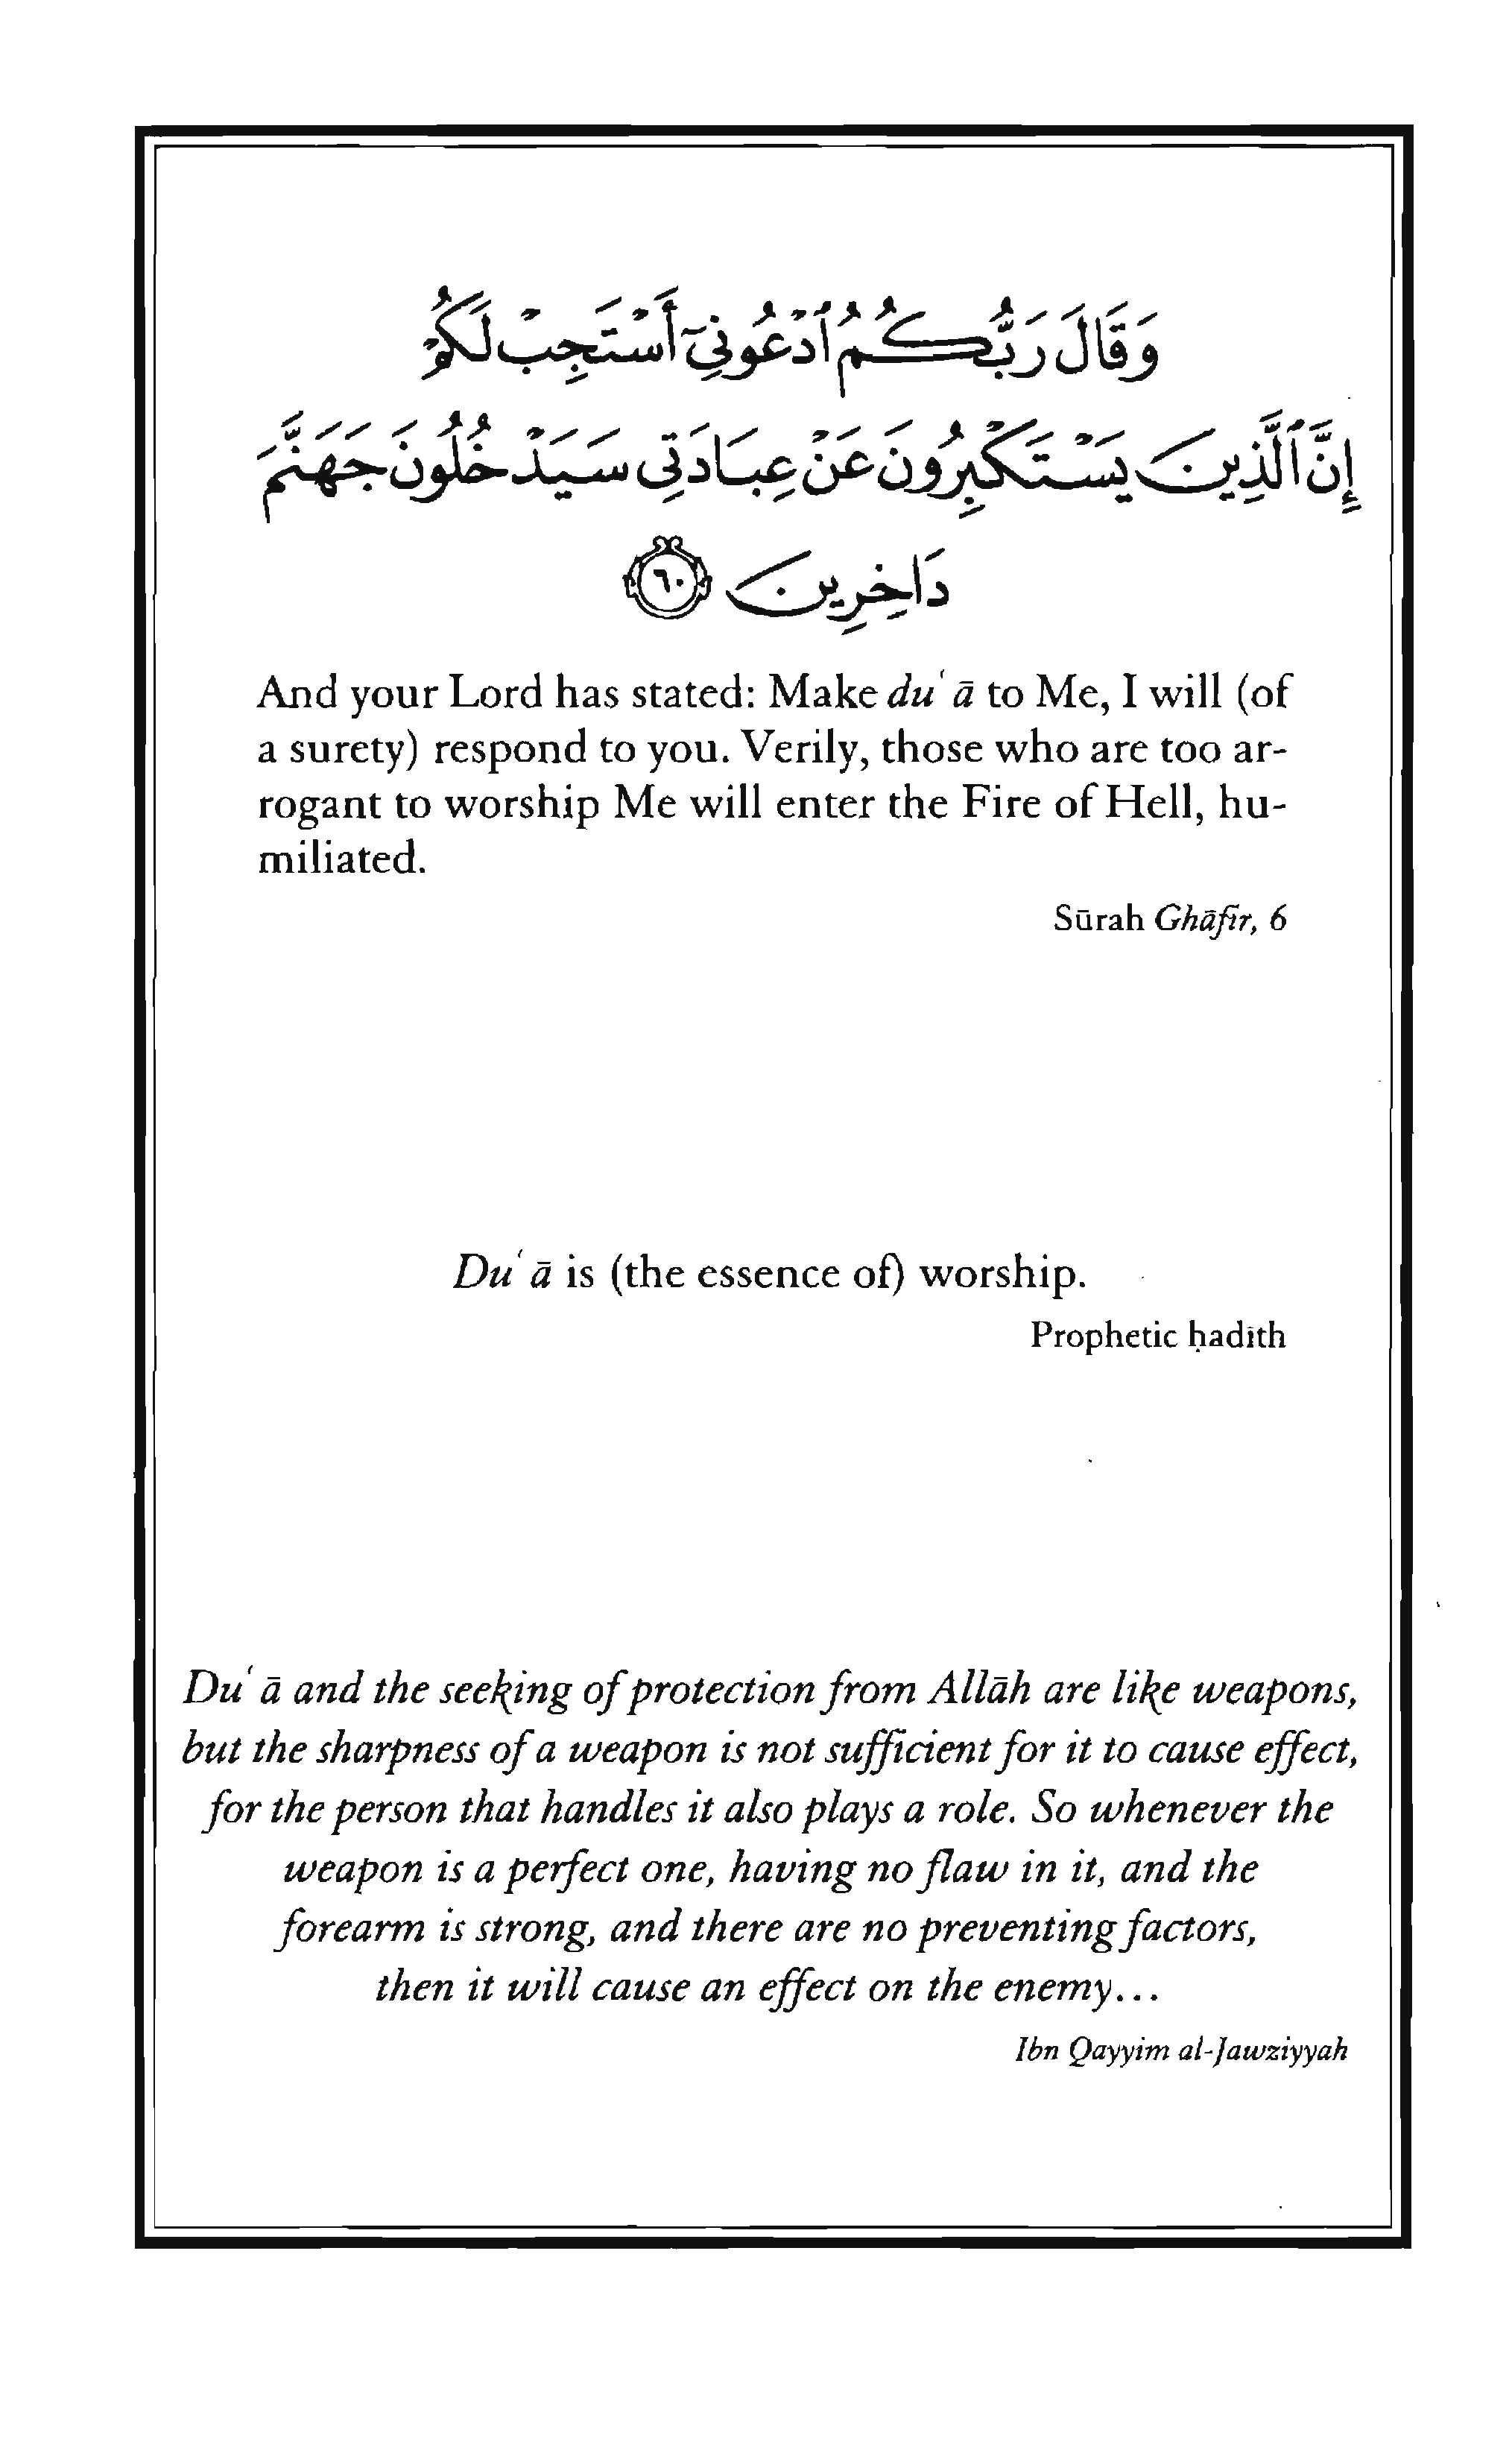 وَقَالَ رَبُّكُمُ ٱدْعُونِىٓ أَسْتَجِبْ لَكُمْ
إِنَّ ٱلَّذِينَ يَسْتَكْبِرُونَ عَنْ عِبَادَتِى سَيَدْخُلُونَ جَهَنَّمَ
دَاخِرِينَ ٦٠
And your Lord has stated: Make duʿā to Me, I will (of
a surety) respond to you. Verily, those who are too ar-
rogant to worship Me will enter the Fire of Hell, hu-
miliated.
Sūrah Ghāfir, 6
Duʿā is (the essence of) worship.
Prophetic ḥadīth
Duʿā and the seeking of protection from Allāh are like weapons,
but the sharpness of a weapon is not sufficient for it to cause effect,
for the person that handles it also plays a role. So whenever the
weapon is a perfect one, having no flaw in it, and the
forearm is strong, and there are no preventing factors,
then it will cause an effect on the enemy...
Ibn Qayyim al-Jawziyyah